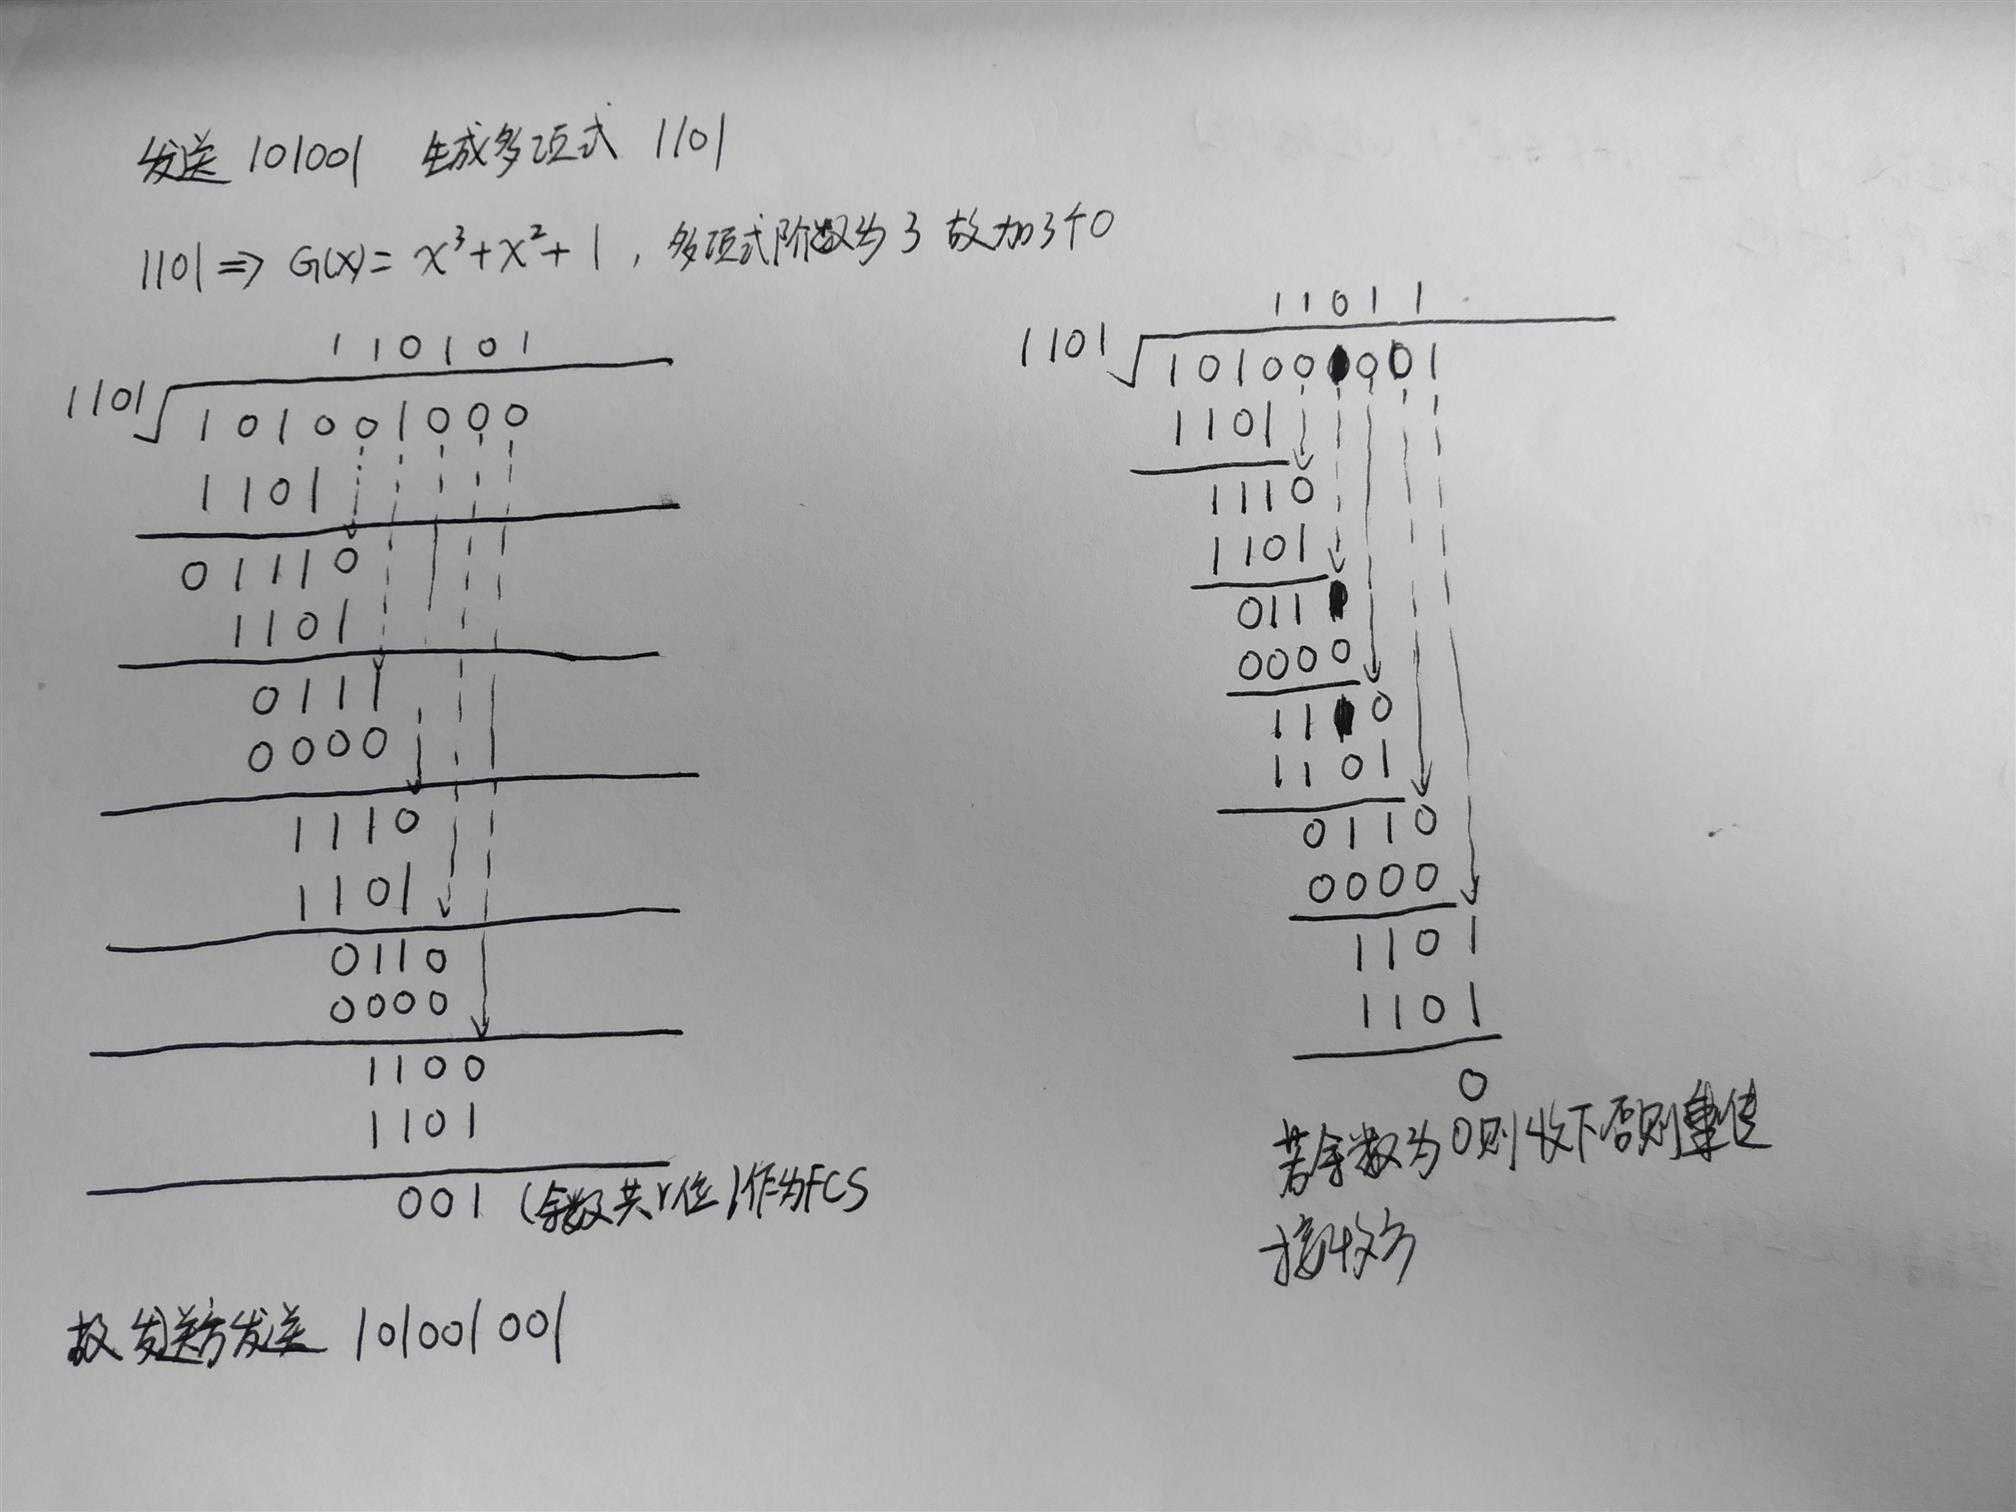 发送 101001 生成多项式 1101
1101 ⇒ G(x) = x³+x²+1，多项式阶数为3 故加3个0
110101
1101
101001000
1101
01110
1101
0111
0000
1110
1101
0110
0000
1100
1101
001 (余数共r位)作为FCS
故发送方发送 101001001
11011
1101
10100 001
1101
1110
1101
011
0000
11 0
1101
0110
0000
1101
1101
0
若余数为0则收下否则重传
接收方